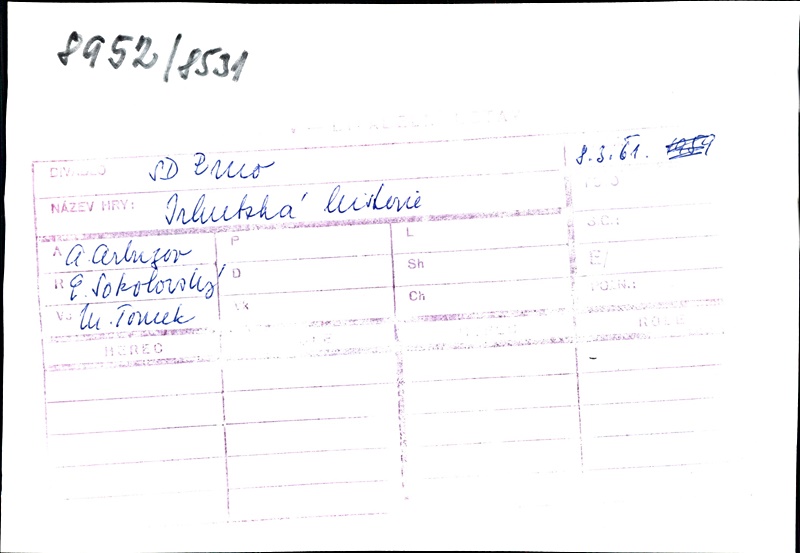 8952/8531
DIVADLO SD Brno 8.3.61. 1959
NÁZEV HRY: Irkutská historie
A A. Arbuzov P L S.C.:
R E. Sokolovský D Sh E/
Vý M. Tomek Vk Ch POZN.:
HEREC ROLE